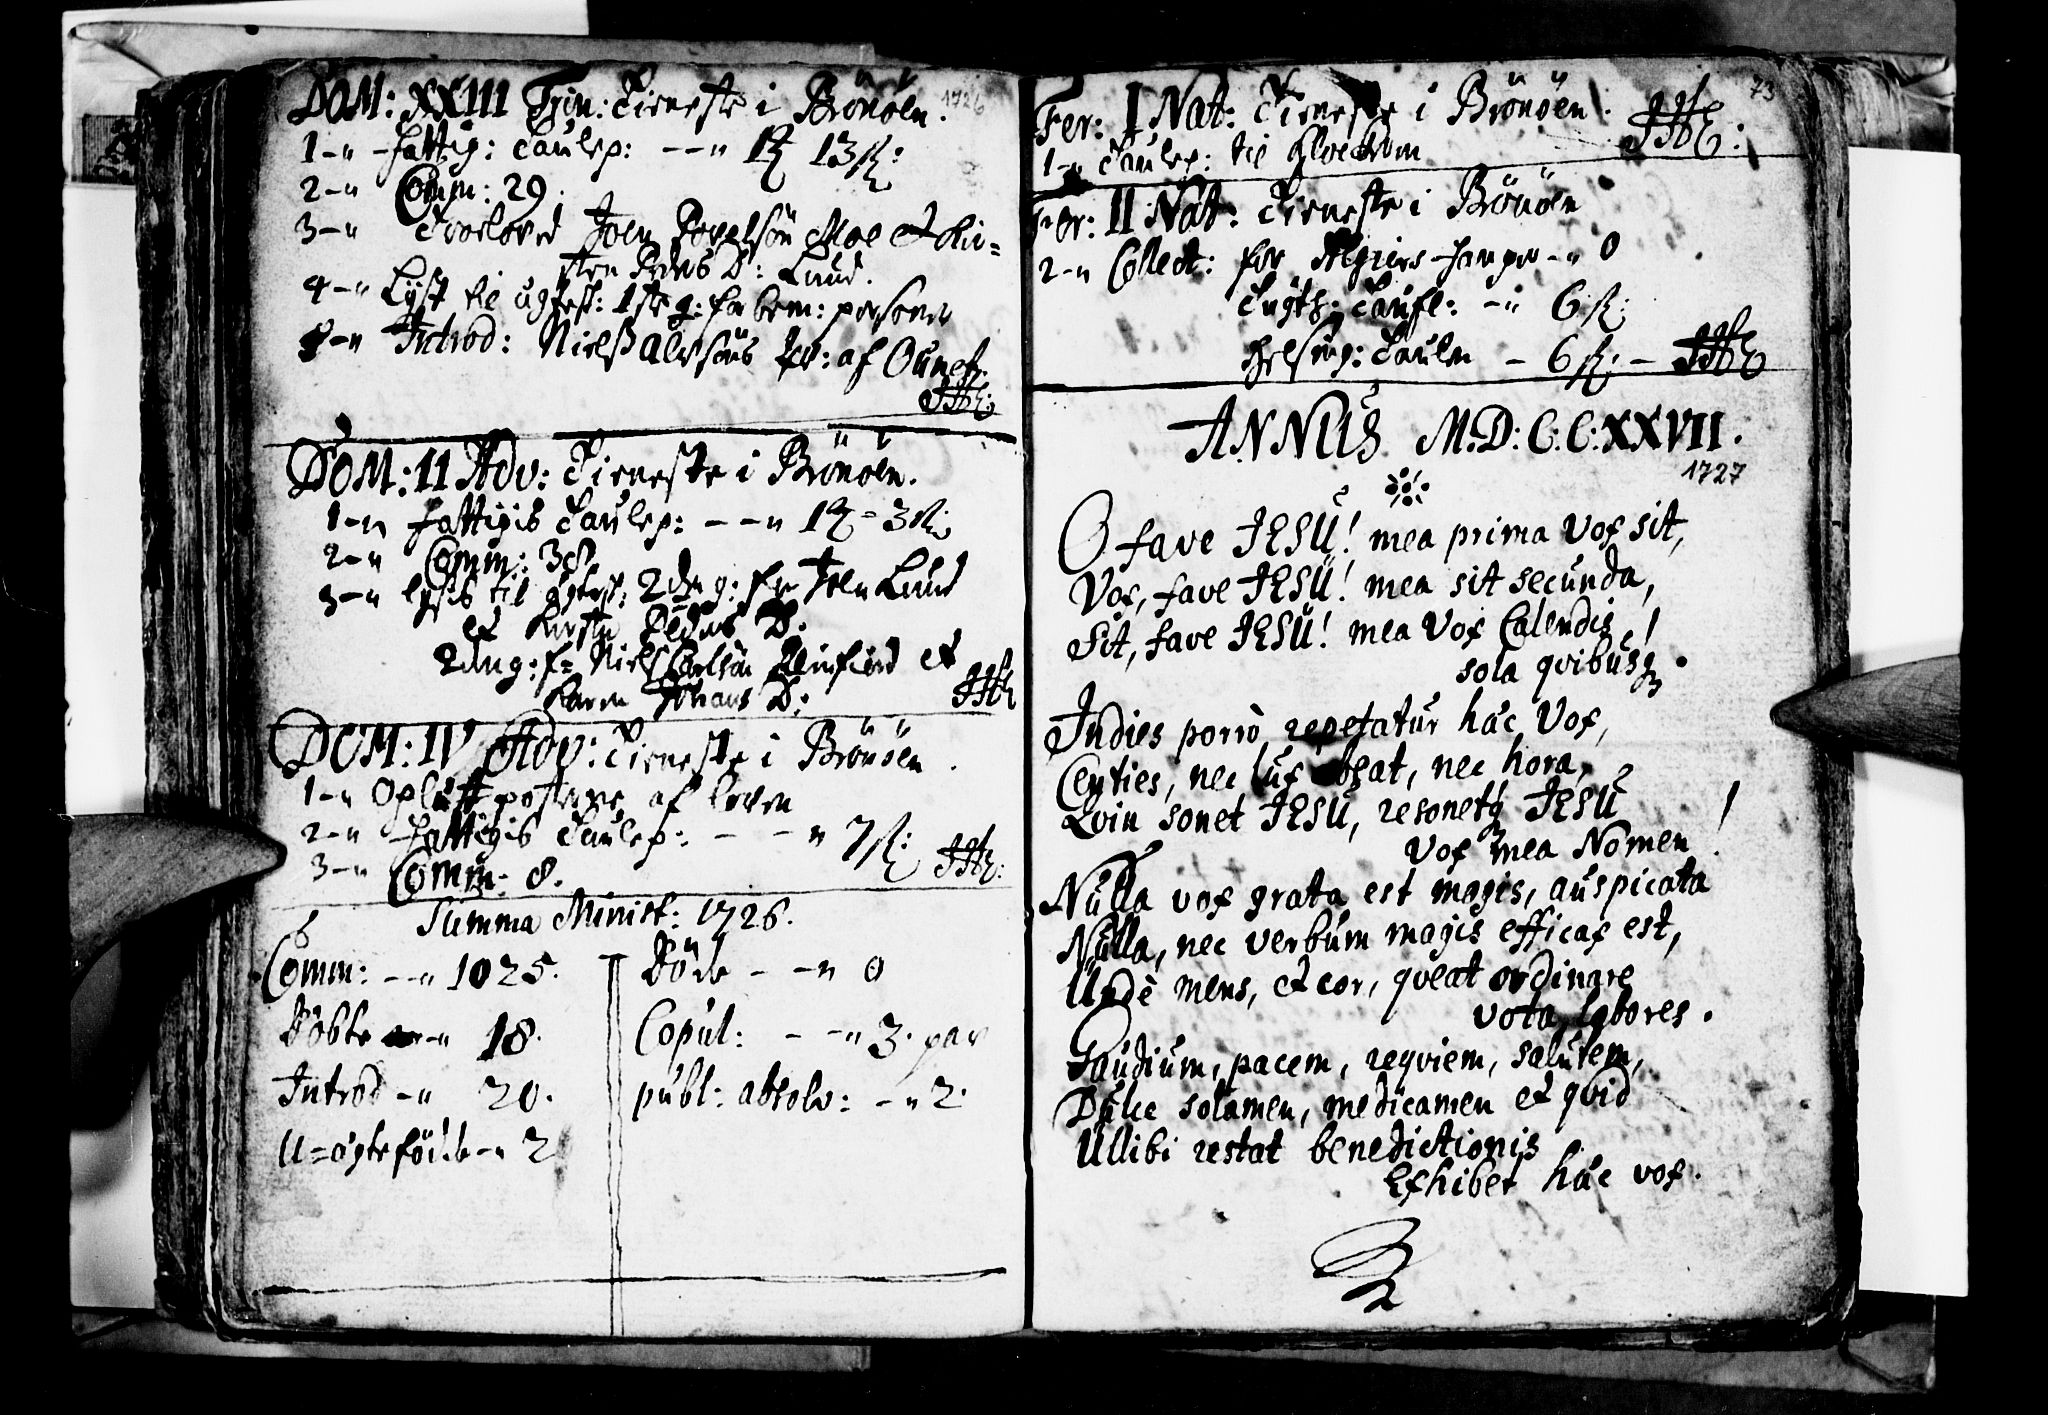 DOM: XXIII Trin: Tieneste i Brönöen. 1726
1-" fattig: Taulep: --" 1 13 sk:
2-" Comm: 29.
3-" Troeloved Joen Povelsön Moe et Kir=
sten Peders D: Luud.
4-" Lyst til ægtesk: 1ste g: for bem: personer
5-" Introd: Niels Alersöns kv: af
DOM: II Adv: Tieneste i Brönöen.
1-" fattigis Taulep: --" 1 - 3 sk:
2-" Comm: 38
3-" lysis til ægtesk: 2den g: for Joen Luud
et Kirsten Peders D:
2den g: f= Niels Carlsön et
Karen Johans D:
DOM: IV Adv: Tieneste i Brönöen.
1-" Oplæst af loven
2-" fattigis Taulep: --" 7 sk:
3-" Comm: 8.
Summa Minist: 1726.
Comm: --" 1025. Döde --" 0
Döbte -" 18. Copul: --" 3. par
Introd -" 20. publ: absolv: -" 2.
U=ægte födde -" 2
73
Fer: I Nat: Tieneste i Brönöen.
1-" Taulep: til
Fer: II Nat: Tieneste i Brönöen
2-" Collect: for -" 0
Tugth: Taufl: -" 6 sk:
Helsing: Taulen - 6 sk: -
ANNUS M.D:C:C:XXVII.
1727
O fave JESU! mea prima Vox sit,
Vox, fave JESU! mea sit secunda,
Sit, fave JESU! mea Vox Calendis!
sola qvibusq.
Indies porrò repetatur hæc Vox,
Centies, nec lux abeat, nec hora,
Qvin sonet JESU, resonetq JESU!
Vox mea Nomen.
Nulla vox grata est magis, auspicata
Nulla, nec verbum magis efficax est,
Undè mens, et cor, qveat ordinare
vota, labores.
Gaudium, pacem, reqviem, salutem,
Dulce solamen, medicamen et qvid
Ullibi restat benedictionis
Exhibet hæc vox.